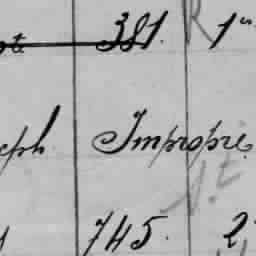 381. 1
eph Impropre.
745. 2